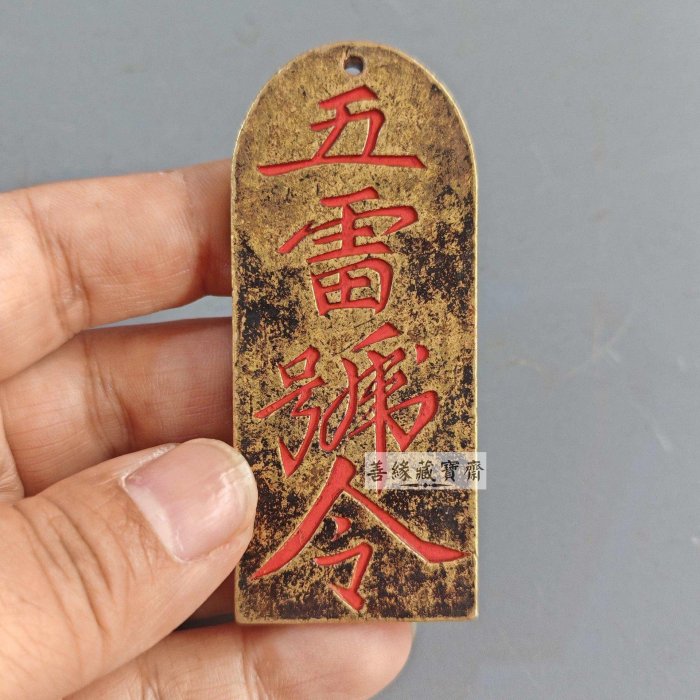 五雷號令
善緣藏寶齋